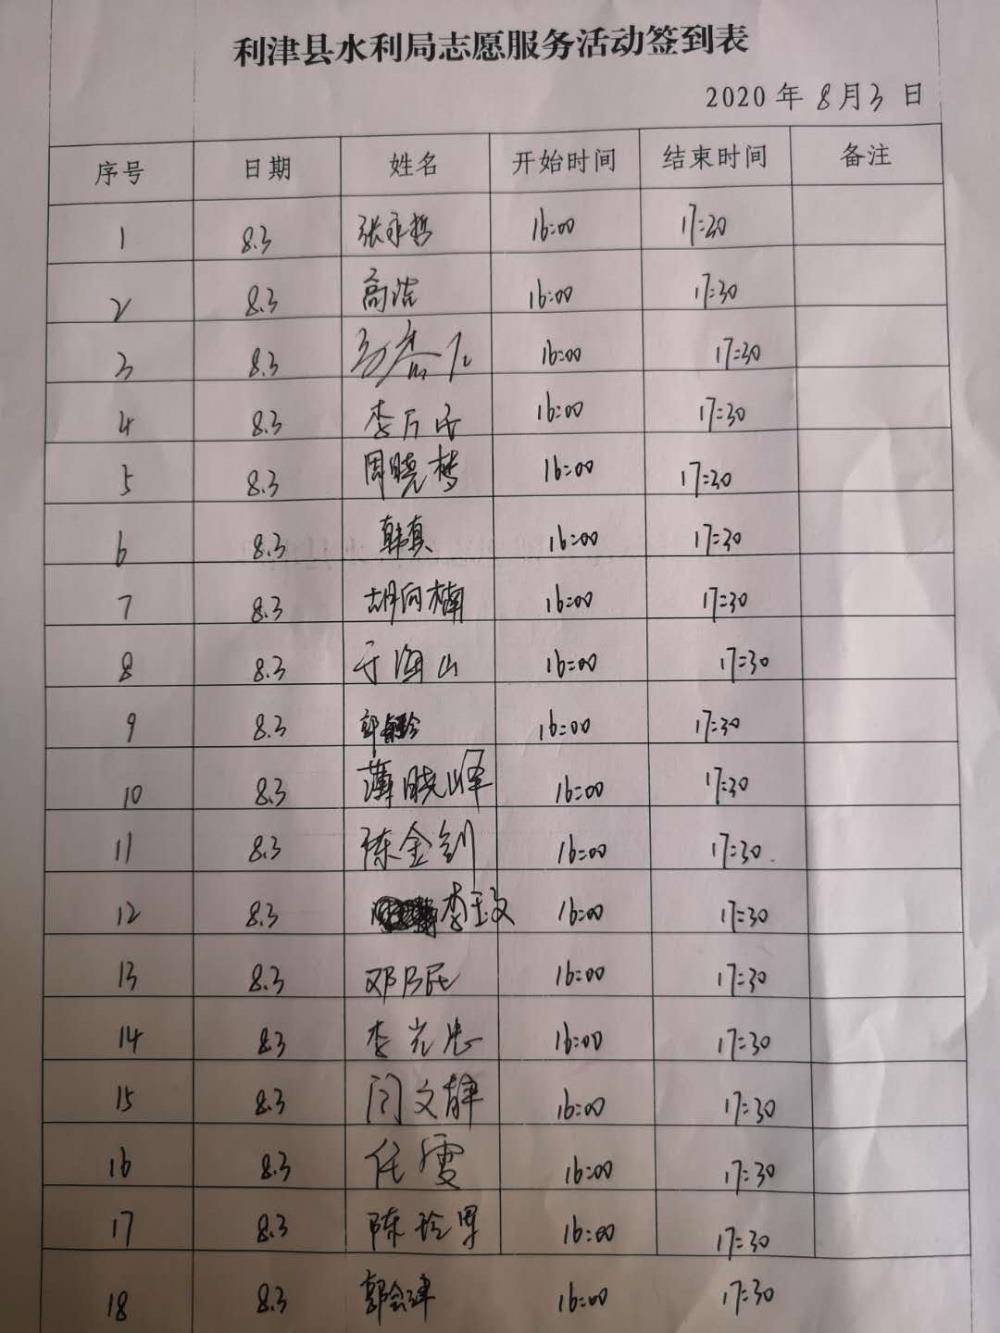 利津县水利局志愿服务活动签到表
2020 年 8 月 3 日
序号 日期 姓名 开始时间 结束时间 备注
1 8.3 张永哲 16:00 17:30
2 8.3 高洁 16:00 17:30
3 8.3 16:00 17:30
4 8.3 李万民 16:00 17:30
5 8.3 周晓梦 16:00 17:30
6 8.3 韩真 16:00 17:30
7 8.3 胡向楠 16:00 17:30
8 8.3 于海山 16:00 17:30
9 8.3 16:00 17:30
10 8.3 薄晓峰 16:00 17:30
11 8.3 陈金钊 16:00 17:30
12 8.3 李玉文 16:00 17:30
13 8.3 邓乃民 16:00 17:30
14 8.3 李光忠 16:00 17:30
15 8.3 闫文静 16:00 17:30
16 8.3 任雯 16:00 17:30
17 8.3 陈玲男 16:00 17:30
18 8.3 郭会津 16:00 17:30